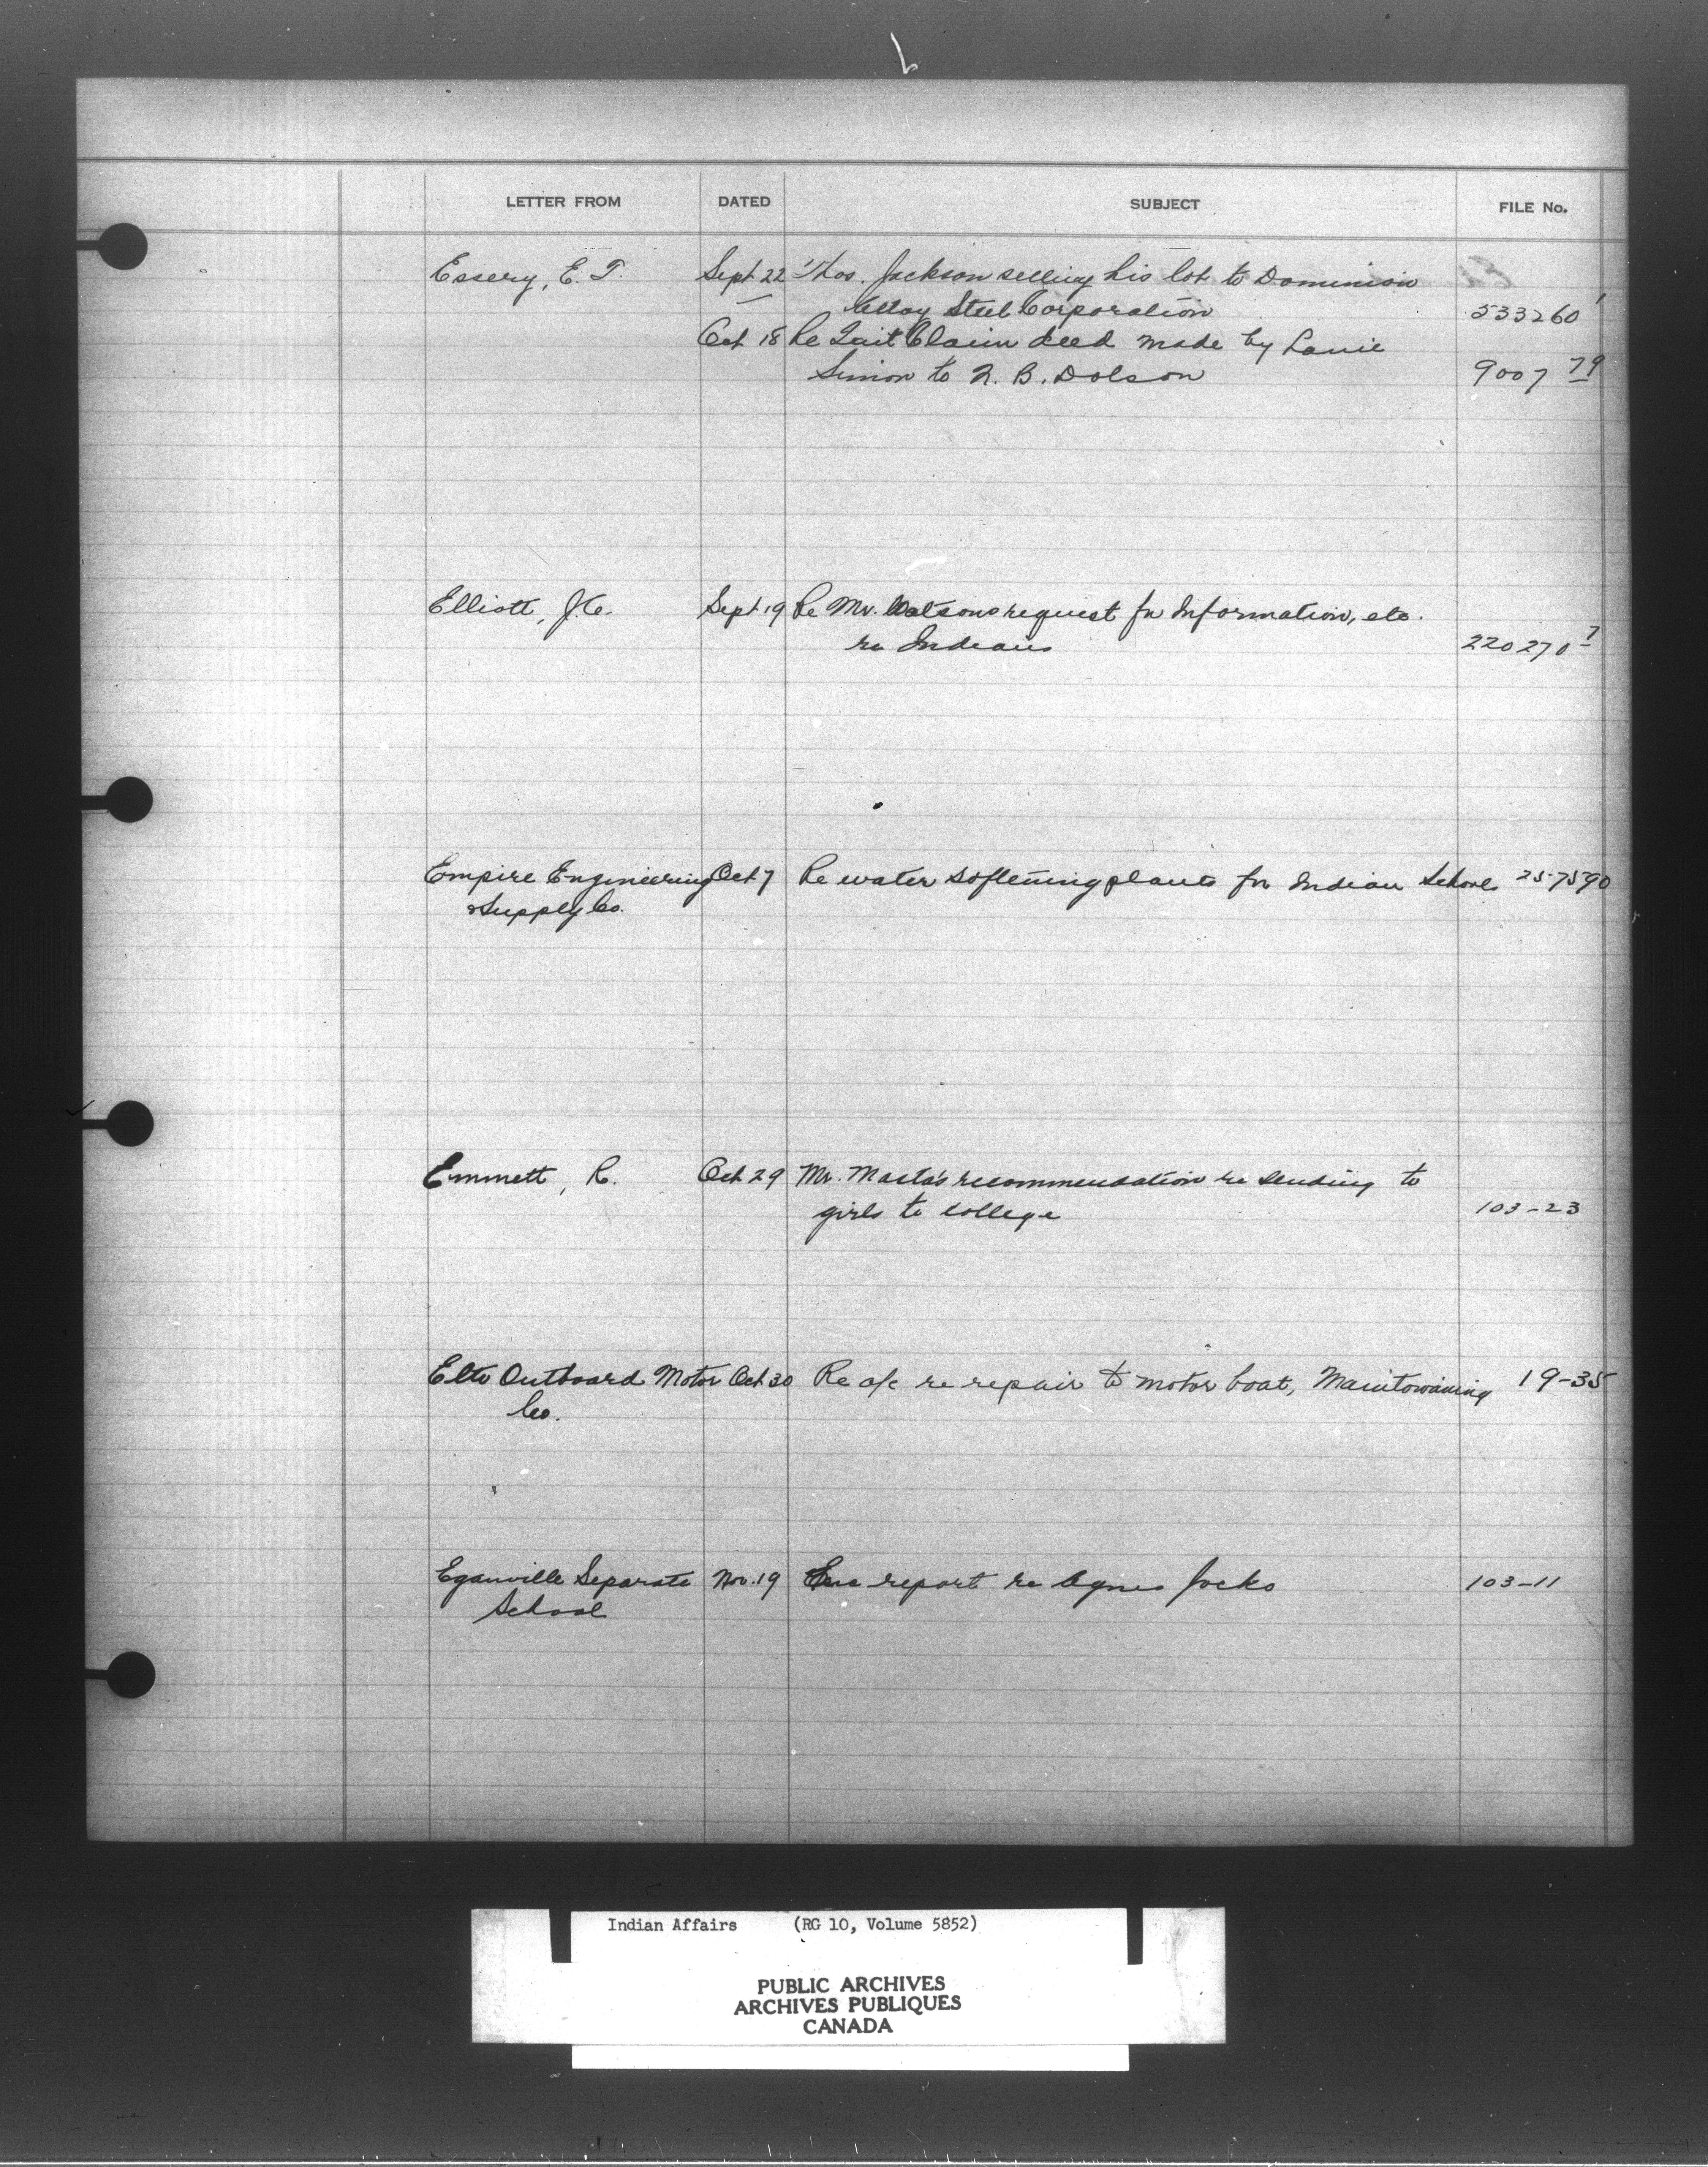 LETTER FROM DATED SUBJECT FILE No.
Essery, E. T. Sept 22 Thos. Jackson selling his lot to Dominion
Alloy Steel Corporation 533260 1
Oct 18 Re Quit Claim deed made by
Simon to N. B. Dolson 9007 79
Elliott, J.C. Sept 19 Re Mr. Watsons request for Information, etc.
re Indians 220270 7
Empire Engineering Oct 7 Re water softening plants for Indian Schools 257590
& Supply Co.
Emmett, R. Oct 29 Mr. Masta's recommendation re sending to
girls to college 103-23
Elto Outboard Motor Oct 30 Re a/c re repair to motor boat, Manitowaning 19-35
Co.
Eganville Separate Nov. 19 report re Agnes Jocko 103-11
School
Indian Affairs (RG 10, Volume 5852)
PUBLIC ARCHIVES
ARCHIVES PUBLIQUES
CANADA